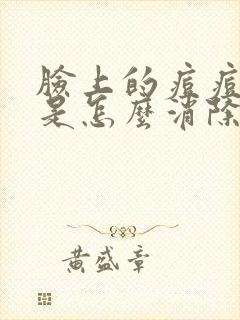 臉上的痘痘
是怎麼消除
黃盛章